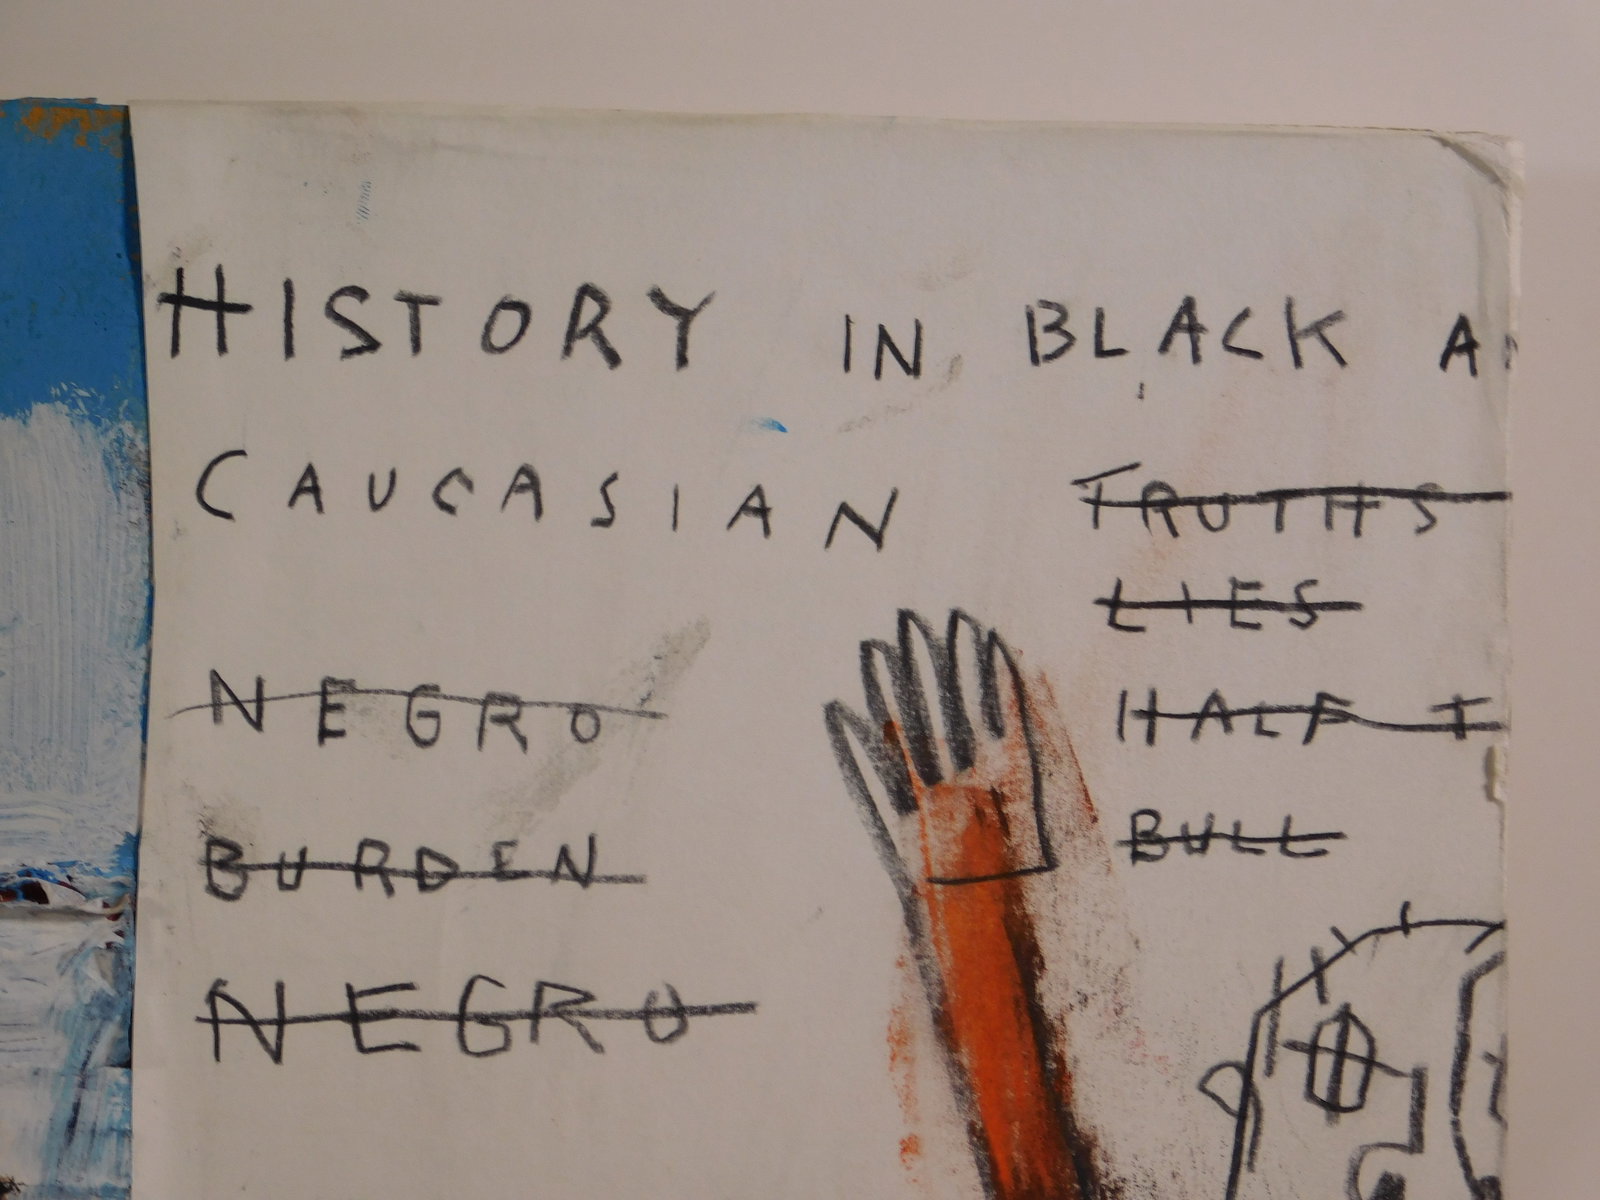 HISTORY IN BLACK
CAUCASIAN
TRUTHS
LIES
NEGRO
HALF
BURDEN
BULL
NEGRO